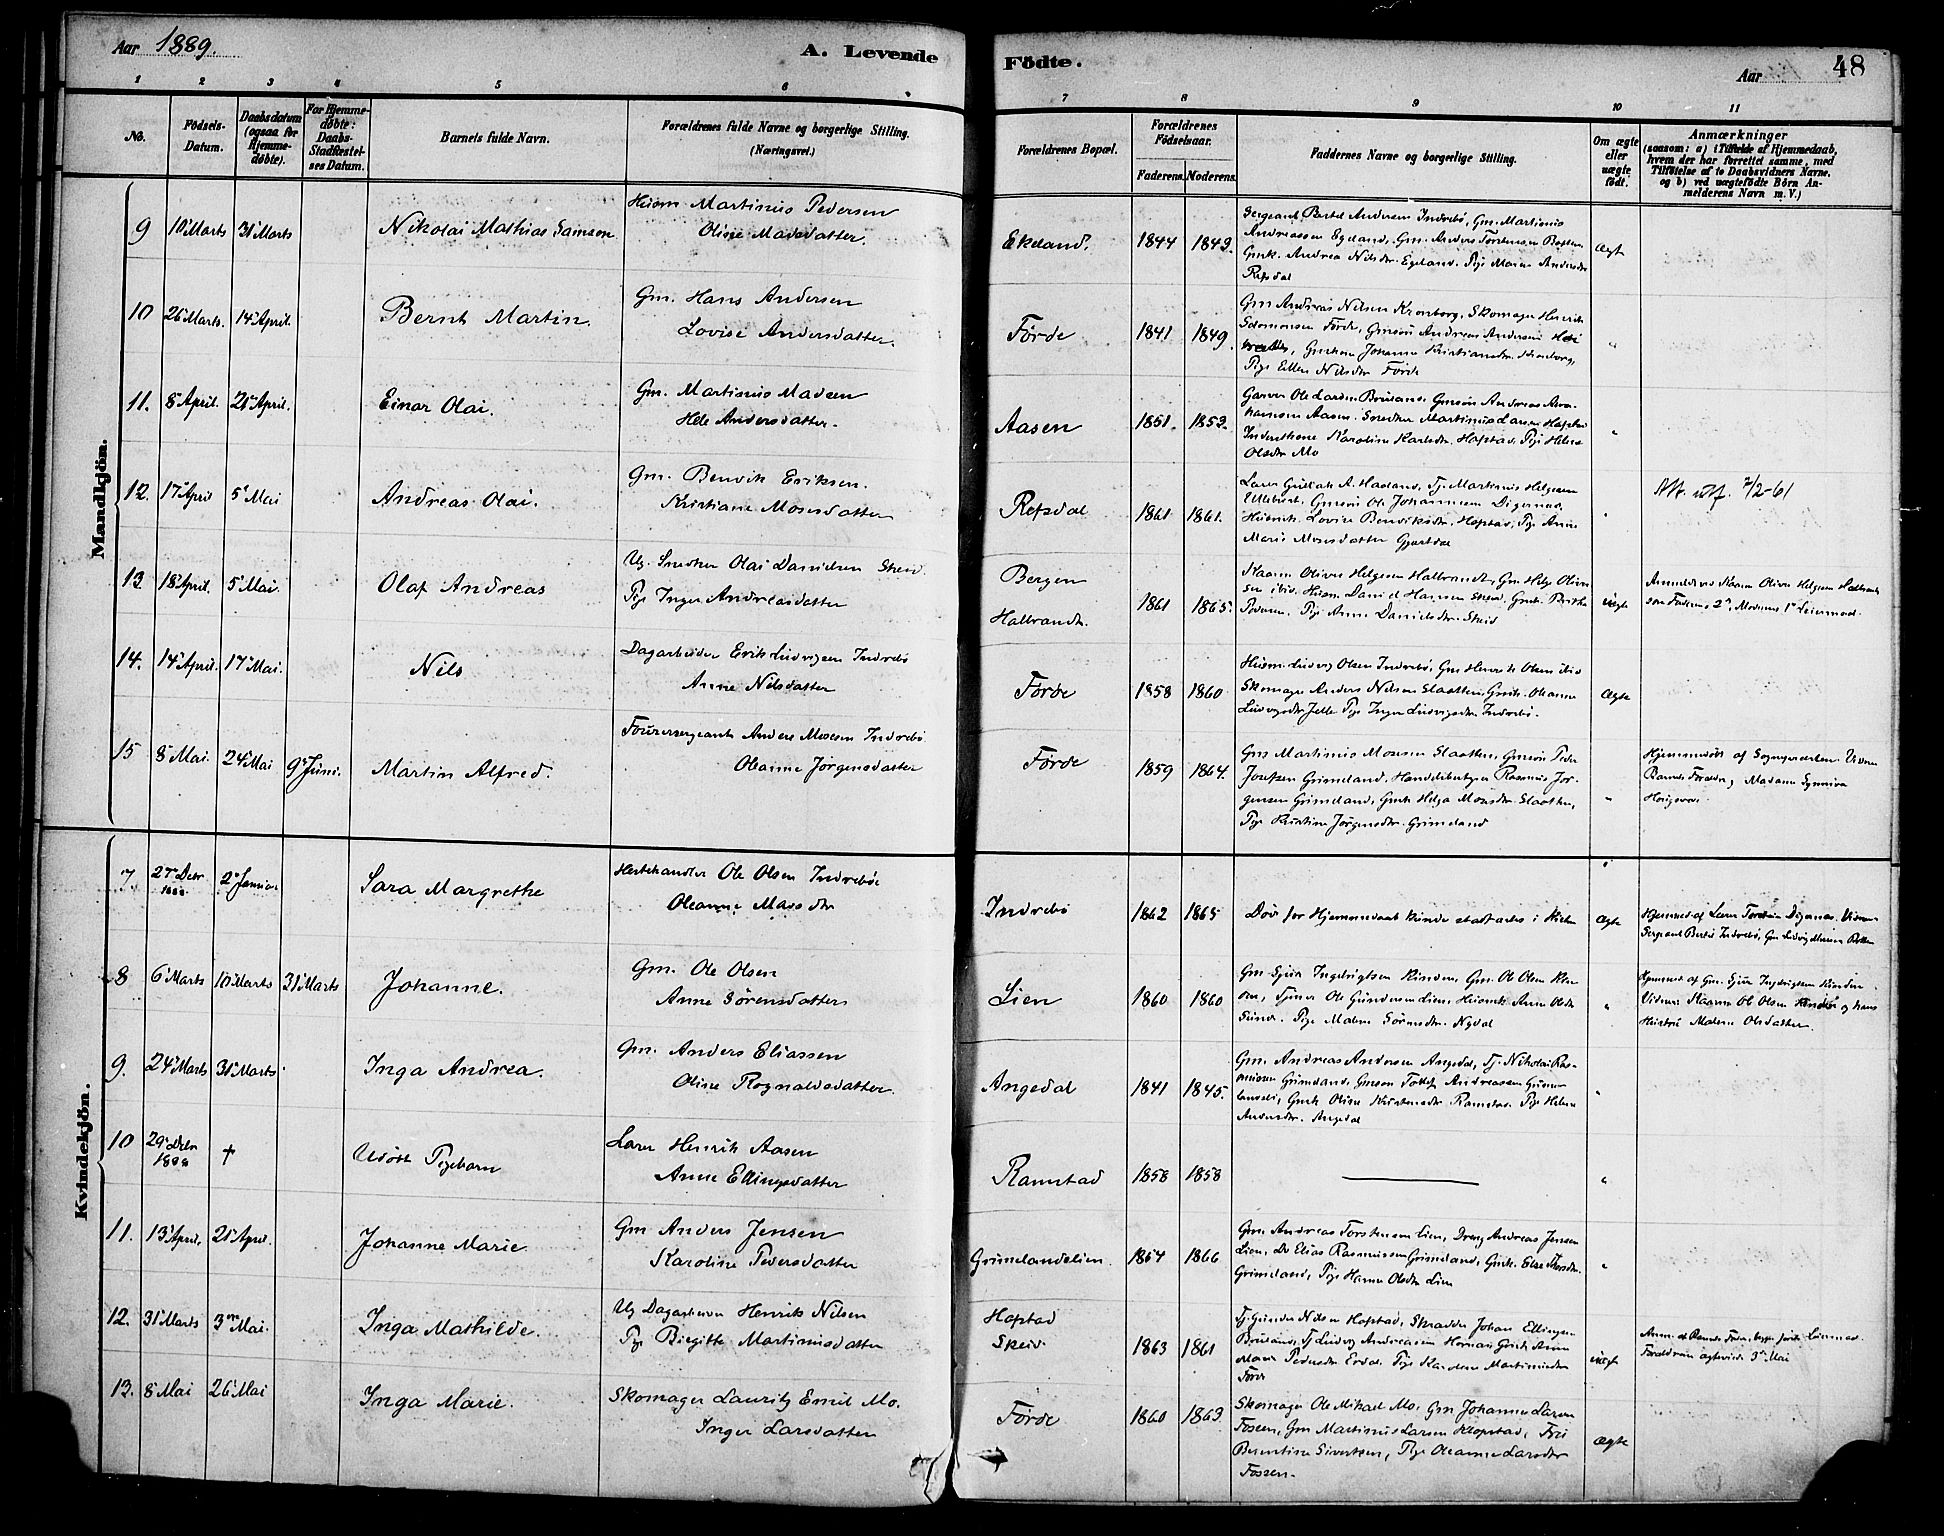 Aar 1889.
A. Levende Födte.
Aar 48
1 2 3 4 5 6 7 8 9 10 11
No.
Födsels-Datum.
Daabsdatum (ogsaa for Hjemmedøbte).
For Hjemmedøbte: Daabs-Stadfæstelses Datum.
Barnets fulde Navn.
Forældrenes fulde Navne og borgerlige Stilling. (Næringsvei.)
Forældrenes Bopæl.
Forældrenes Fødselsaar.
Faderens. Moderens.
Faddernes Navne og borgerlige Stilling.
Om ægte eller uægte født.
Anmærkninger (saasom: a) i Tilfælde af Hjemmedaab, hvem der har forrettet samme, med Tilføielse af to Daabsvidners Navne, og b) ved uægtefödte Börn Anmelderens Navn m. V.)
Mandkjön.
9 10' Marts 31' Marts Nikolai Mathias Samson
Husm Martinus Pedersen
Oline Madsdatter.
Ekeland. 1844 1849.
Sergeant Bertel Andersen Indrebø, Gm. Martinus
Andreassen Egeland, Gm. Anders Torstensen
Gmk. Andrea Nilsdtr. Egeland. Pige Maren Andersdtr
Refsdal
Ægt
10 26' Marts. 14' April. Bernt Martin.
Gm. Hans Andersen
Lovise Andersdatter.
Førde 1841 1849.
Gm Andreas Nilsen Kronborg, Skomager Henrik
Salomonsen Førde, Gmsøn Andreas Andersen
Gmkone Johanne Kristiansdtr. Kronborg,
Pige Ellen Nilsdtr Førde
"
11. 8' April. 21' April. Einar Olai.
Gm. Martinus Madsen
Hele Andersdatter.
Aasen 1851. 1852.
Garver Ole Larsen Bruland, Gmsøn Andreas Abrahamsen Aasen. Snedker Martinus Larsen Hafstad
Karoline Karlsdtr. Hafstad, Pige Helene
Olsdtr Mo
"
12. 17' April 5' Mai Andreas Olai.
Gm. Benvik Eriksen.
Kristiane Mosesdatter
Refsdal 1861 1861.
Lærer Gudlak A. Haaland, Tj. Martinus Helgesen
Gmsøn Ole Johannesen Digernes,
Husmk. Lovise Benviksdtr. Hafstad, Pige Anne
Marie Mosesdatter
"
Att. utf. 7/2-61
13 18' April. 5' Mai. Olaf Andreas
Ug. Snedker Olai Danielsen Skeid
Pige Inger Andreasdatter
Bergen
Halbrandt. 1861 1865.
Kaarm Oliver Helgesen Halbrandt, Gm Helge Oliversen ibid. Husm. Daniel Hansen Skeid, Gmk. Brithe
Pedersen. Pige Anne Danielsdtr. Skeid
Uægte
Anmeldt ved Kaarm Oliver Helgesen Halbrandt
som Faderens 2', Moderens 1' Leiermaal.
14. 14' April. 17' Mai. Nils
Dagarbeider Erik Ludvigsen Indrebø
Anne Nilsdatter
Førde 1858 1860
Husm. Ludvig Olsen Indrebø, Gm Henrik Olsen ibid
Skomager Anders Nilsen Slaatten, Gmk. Oleanne
Ludvigsdtr Jelle Pige Inger Ludvigsdtr. Indrebø.
Ægte
15 8' Mai. 24' Mai 9' Juni. Martin Alfred.
Fourersergeant Anders Mosesen Indrebø
Oleanne Jørgensdatter
Førde 1859 1864.
Gm Martinus Monsen Slaatten, Gmsøn Peder
Josefsen Grimeland, Handelsbetjent Rasmus Jørgensen Grimeland, Gmk Helga Monsdtr. Slaatten,
Pige Kristine Jørgensdtr. Grimeland
"
Hjemmedøbt af Sognepræsten. Vidner
Barnets Forældre, Madame Synneva
Kvindekjön.
7. 27' Debr 1888 2' Januar Sara Margrethe
Hestehandler Ole Olsen Indrebø
Oleanne Madsdtr
Indrebø 1862 1865
Døde før Hjemmedaab kunde stadfæstes i Kirken
Ægte
Hjemmed. af Lærer Digernes. Vidner
Sergeant Bertel Indrebø, Gm Ludvig
8 6' Marts 10' Marts 31' Marts Johanne.
Gm. Ole Olsen
Anne Sørensdatter
Lien 1860 1860
Gm Sjur Ingebrigtsen Kinden, Gm. Ole Olsen
Tjener Ole Gundersen Lien, Husmk Anne Olsdtr
Sunde. Pige Malene Sørensdtr. Nydal
"
Hjemmed af Gm. Sjur Ingebrigtsen Kinden.
Vidner: Kaarm Ole Olsen Kinden og hans
Hustru Malene Olsdatter.
9. 24' Marts 31' Marts. Inga Andrea.
Gm. Anders Eliassen
Oline Rognaldsdatter.
Angedal 1841 1845.
Gm. Andreas Andersen Angedal, Tj. Nikolai Rasmussen Grimeland, Gmsøn Tollef Andreassen
Gmk Oline Kristensdtr Ramstad. Pige Helene
Andersdtr. Angedal
"
10 29' Debr 1888 † Udøbt Pigebarn
Lærer Henrik Aasen
Anne Ellingsdatter
Ramstad 1858 1858
"
11. 13' April. 21' April. Johanne Marie
Gm Anders Jensen
Karoline Pedersdatter
Grimelandslien 1864 1866
Gm. Andreas Torstensen Lien, Dreng Andreas Jensen
Lien, Do Elias Rasmussen Grimeland, Gmk. Else
Grimeland, Pige Hanne Olsdtr Lien
"
12. 31' Marts 3' Mai. Inga Mathilde.
Ug Dagarbeider Henrik Nilsen
Pige Birgitte Martinusdatter
Hafstad
Skeid 1863 1861
Tj. Gunder Nilsen Hafstad, Skrædder Johan Ellingsen
Bruland, Tj Ludvig Andreassen Hornnes Gmk Anne
Marie Pedersdtr Erdal Pige Karoline Martinusdtr
Førde
Uægt
Anm. af Barnets Fader, begge første Leiermaal.
Forældrene ægteviede 3' Mai
13. 8' Mai 26' Mai Inga Marie.
Skomager Lauritz Emil Mo.
Inger Larsdatter
Førde 1860 1863.
Skomager Ole Mikael Mo, Gm Johannes Larsen
Fossen, Gm Martinus Larsen Hafstad, Fru
Berentine Sivertsen, Pige Oleanne Larsdtr
Fossen.
Ægte